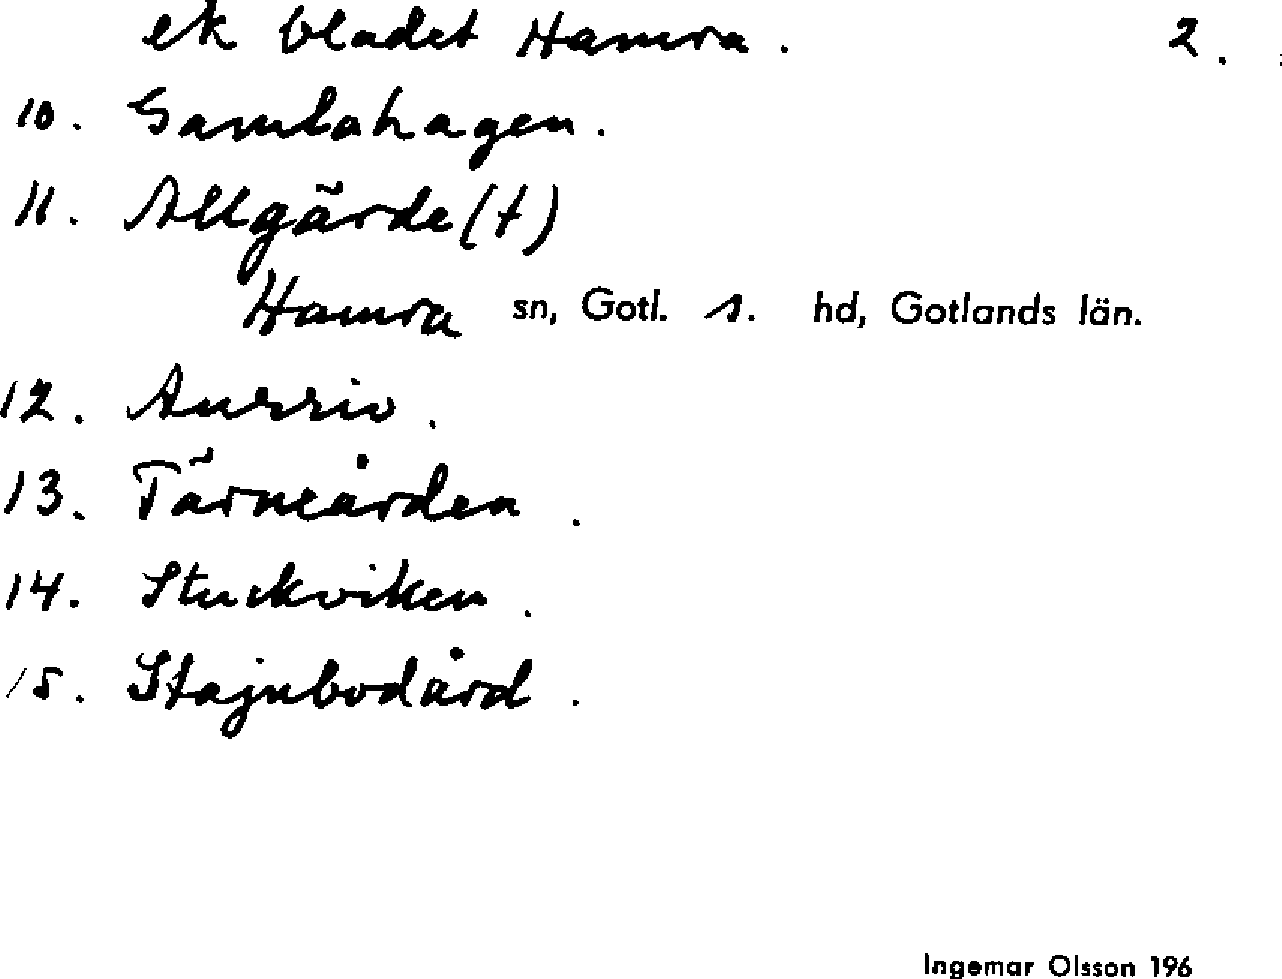 ek bladet Hamra. 2.
10. Gamlahagen.
11. Allgärde(t)
Hamra sn, Gotl. s. hd, Gotlands län.
12. Aurriv.
13. Tärneården.
14. Stuckviken.
15. Stajnbodård.
Ingemar Olsson 196